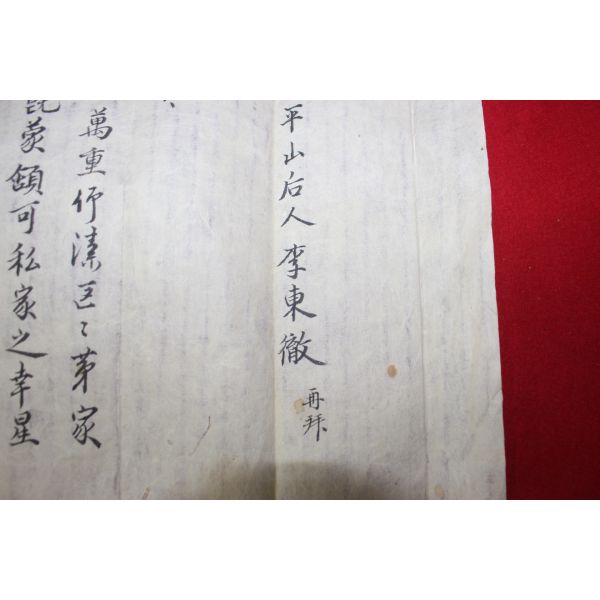 平山后人 李東徹 再拜
萬重仰溸區〻第家
蒙頷可私家之幸星